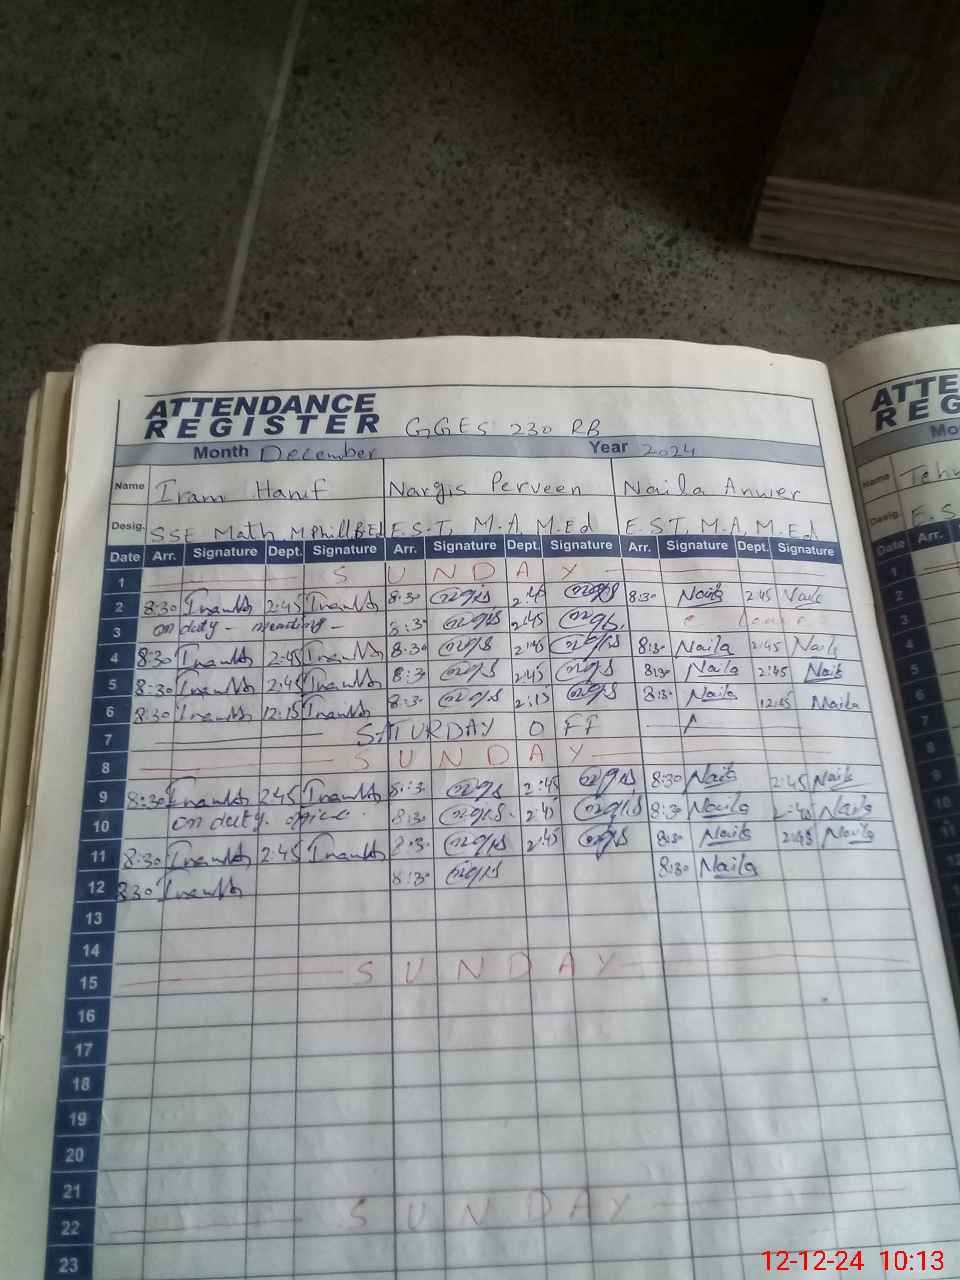 ATTENDANCE
REGISTER GGES 230 RB
Month December Year 2024
Name Iram Hanif Nargis Perveen Naila Anwer
Desig. SSE Math MPhill BEd E.S.T, M.A, M.Ed E.ST, M.A, M.Ed
Date Arr. Signature Dept. Signature Arr. Signature Dept. Signature Arr. Signature Dept. Signature
1 SUNDAY
2 8:30 2:45 8:30 8:30 Naila 2:45 Naila
3 on duty - meeting - 8:30 2:45 Leave
4 8:30 2:45 8:30 2:45 8:30 Naila 2:45 Naila
5 8:30 2:45 8:30 2:45 8:30 Naila 2:45 Naila
6 8:30 12:15 8:30 8:30 Naila Naila
7 SATURDAY OFF
8 SUNDAY
9 8:30 2:45 8:30 2:45 8:30 Naila 2:45 Naila
10 on duty. office. 8:30 2:45 8:30 Naila 2:45 Naila
11 8:30 2:45 8:30 2:45 8:30 Naila 2:45 Naila
12 8:30 8:30 8:30 Naila
13
14
15 SUNDAY
16
17
18
19
20
21
22 SUNDAY
23
ATTE
REG
Mo
Name Tehm
Desig. E.S
Date Arr.
1
2
3
4
5
6
7
8
9
10
11
12
12-12-24 10:13